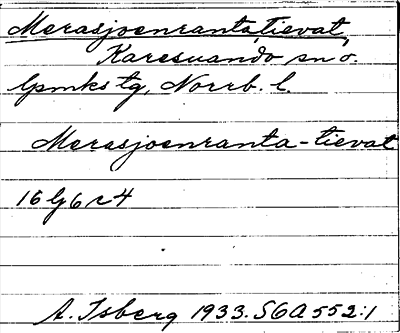 Merasjoenranta,tievat,
Karesuando sn o.
lpmks tg, Norrb. l.
Merasjoenranta-tievat
16 g 6 r 4
A. Isberg 1933. SOA 552:1